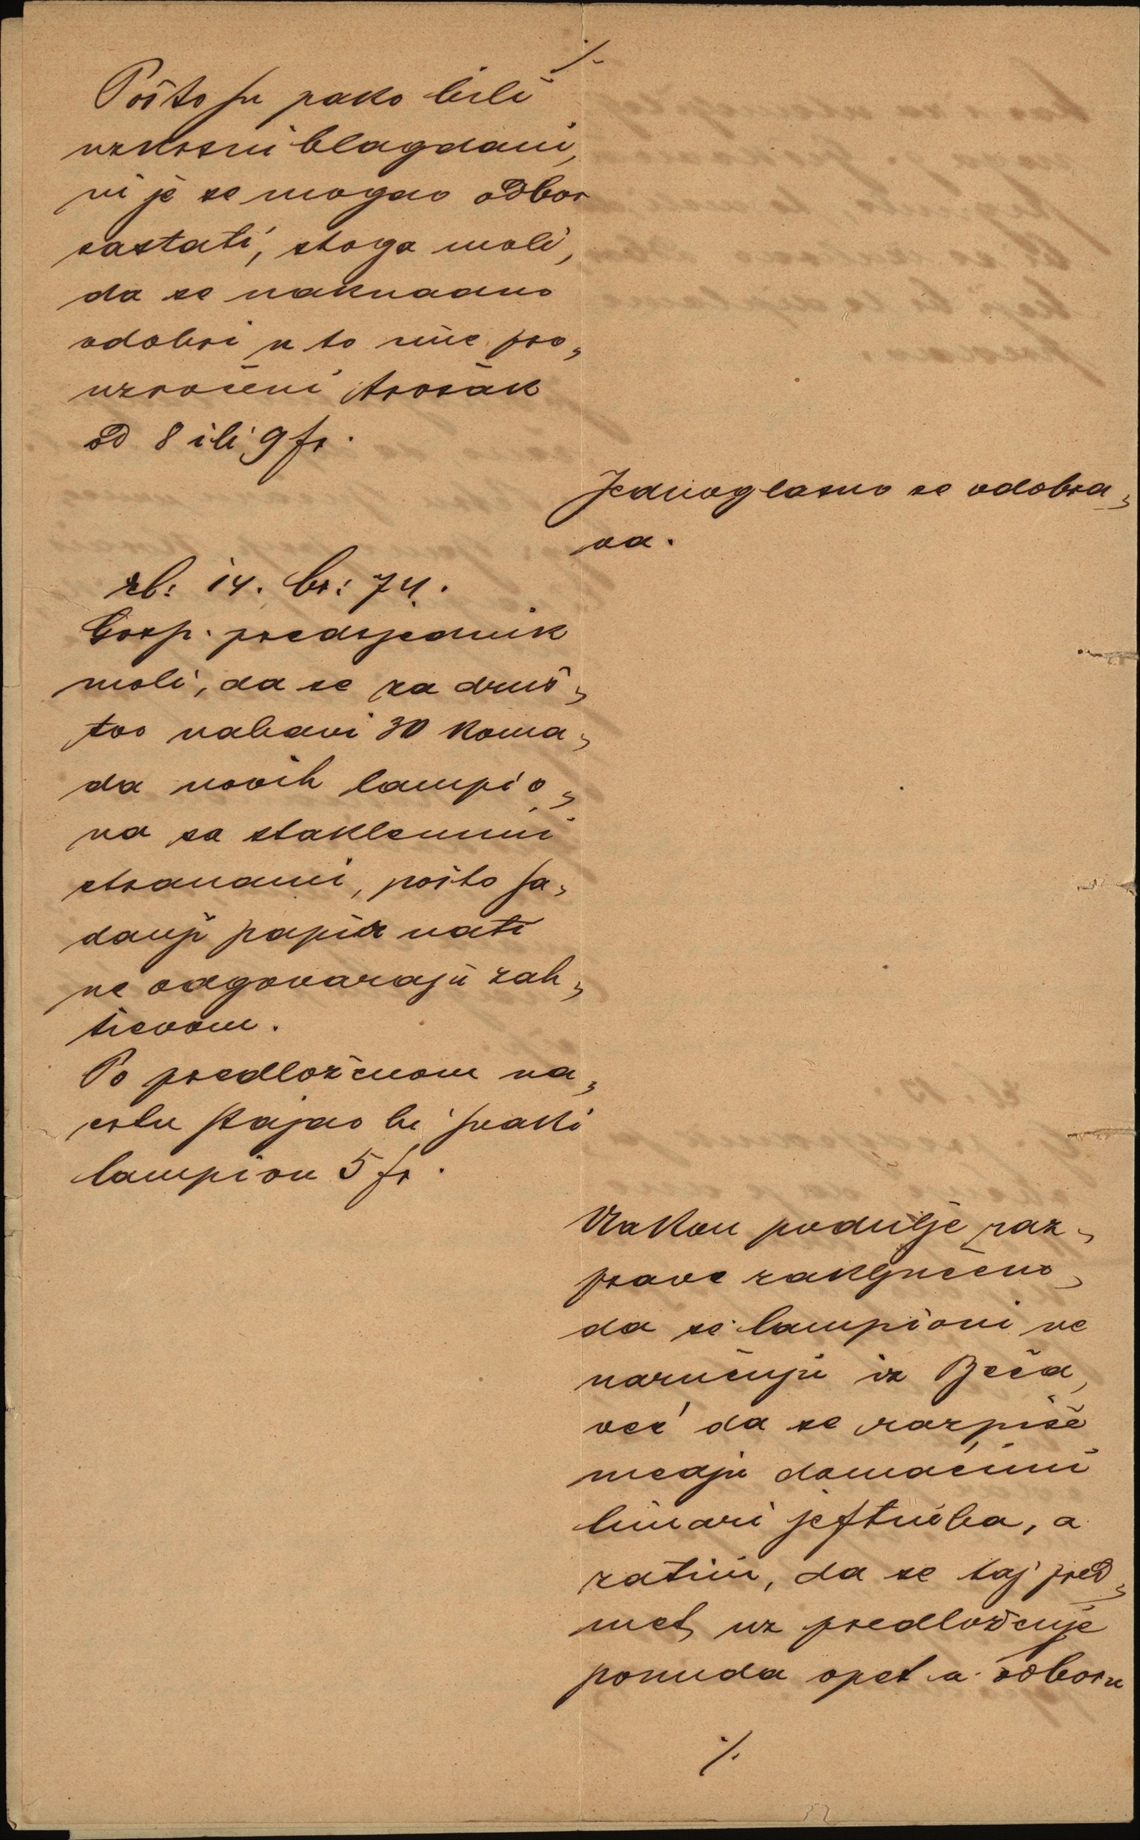 ·/·
Pošto su pako bili
uzkrsni blagdani,
ni je se mogao odbor
sastati, stoga moli,
da se naknadno
odobri u to ime pro„
uzročeni trošak
od 8 ili 9 fr.
Jednoglasno se odobra„
va.
rb: 14. br: 74.
Gosp. predsjednik
moli, da se za druš„
tvo nabavi 30 koma„
da novih lampio„
na sa staklenimi
stranami, pošto sa„
danji papir nati
ne odgovaraju zah„
tievom.
Po predloženom na„
crtu stajao bi svaki
lampion 5 fr.
Nakon podulje raz„
prave zaključeno,
da se lampioni ne
naručuju iz Beča,
već da se razpiše
medju domaćimi
limari jeftimba, a
zatim, da se taj pred„
met, uz predloženje
ponuda opet u odboru
·/·